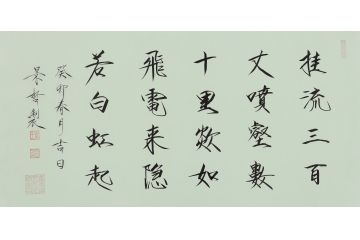 挂流三百
丈噴壑數
十里欻如
飛電来隐
若白虹起
癸卯春月吉日